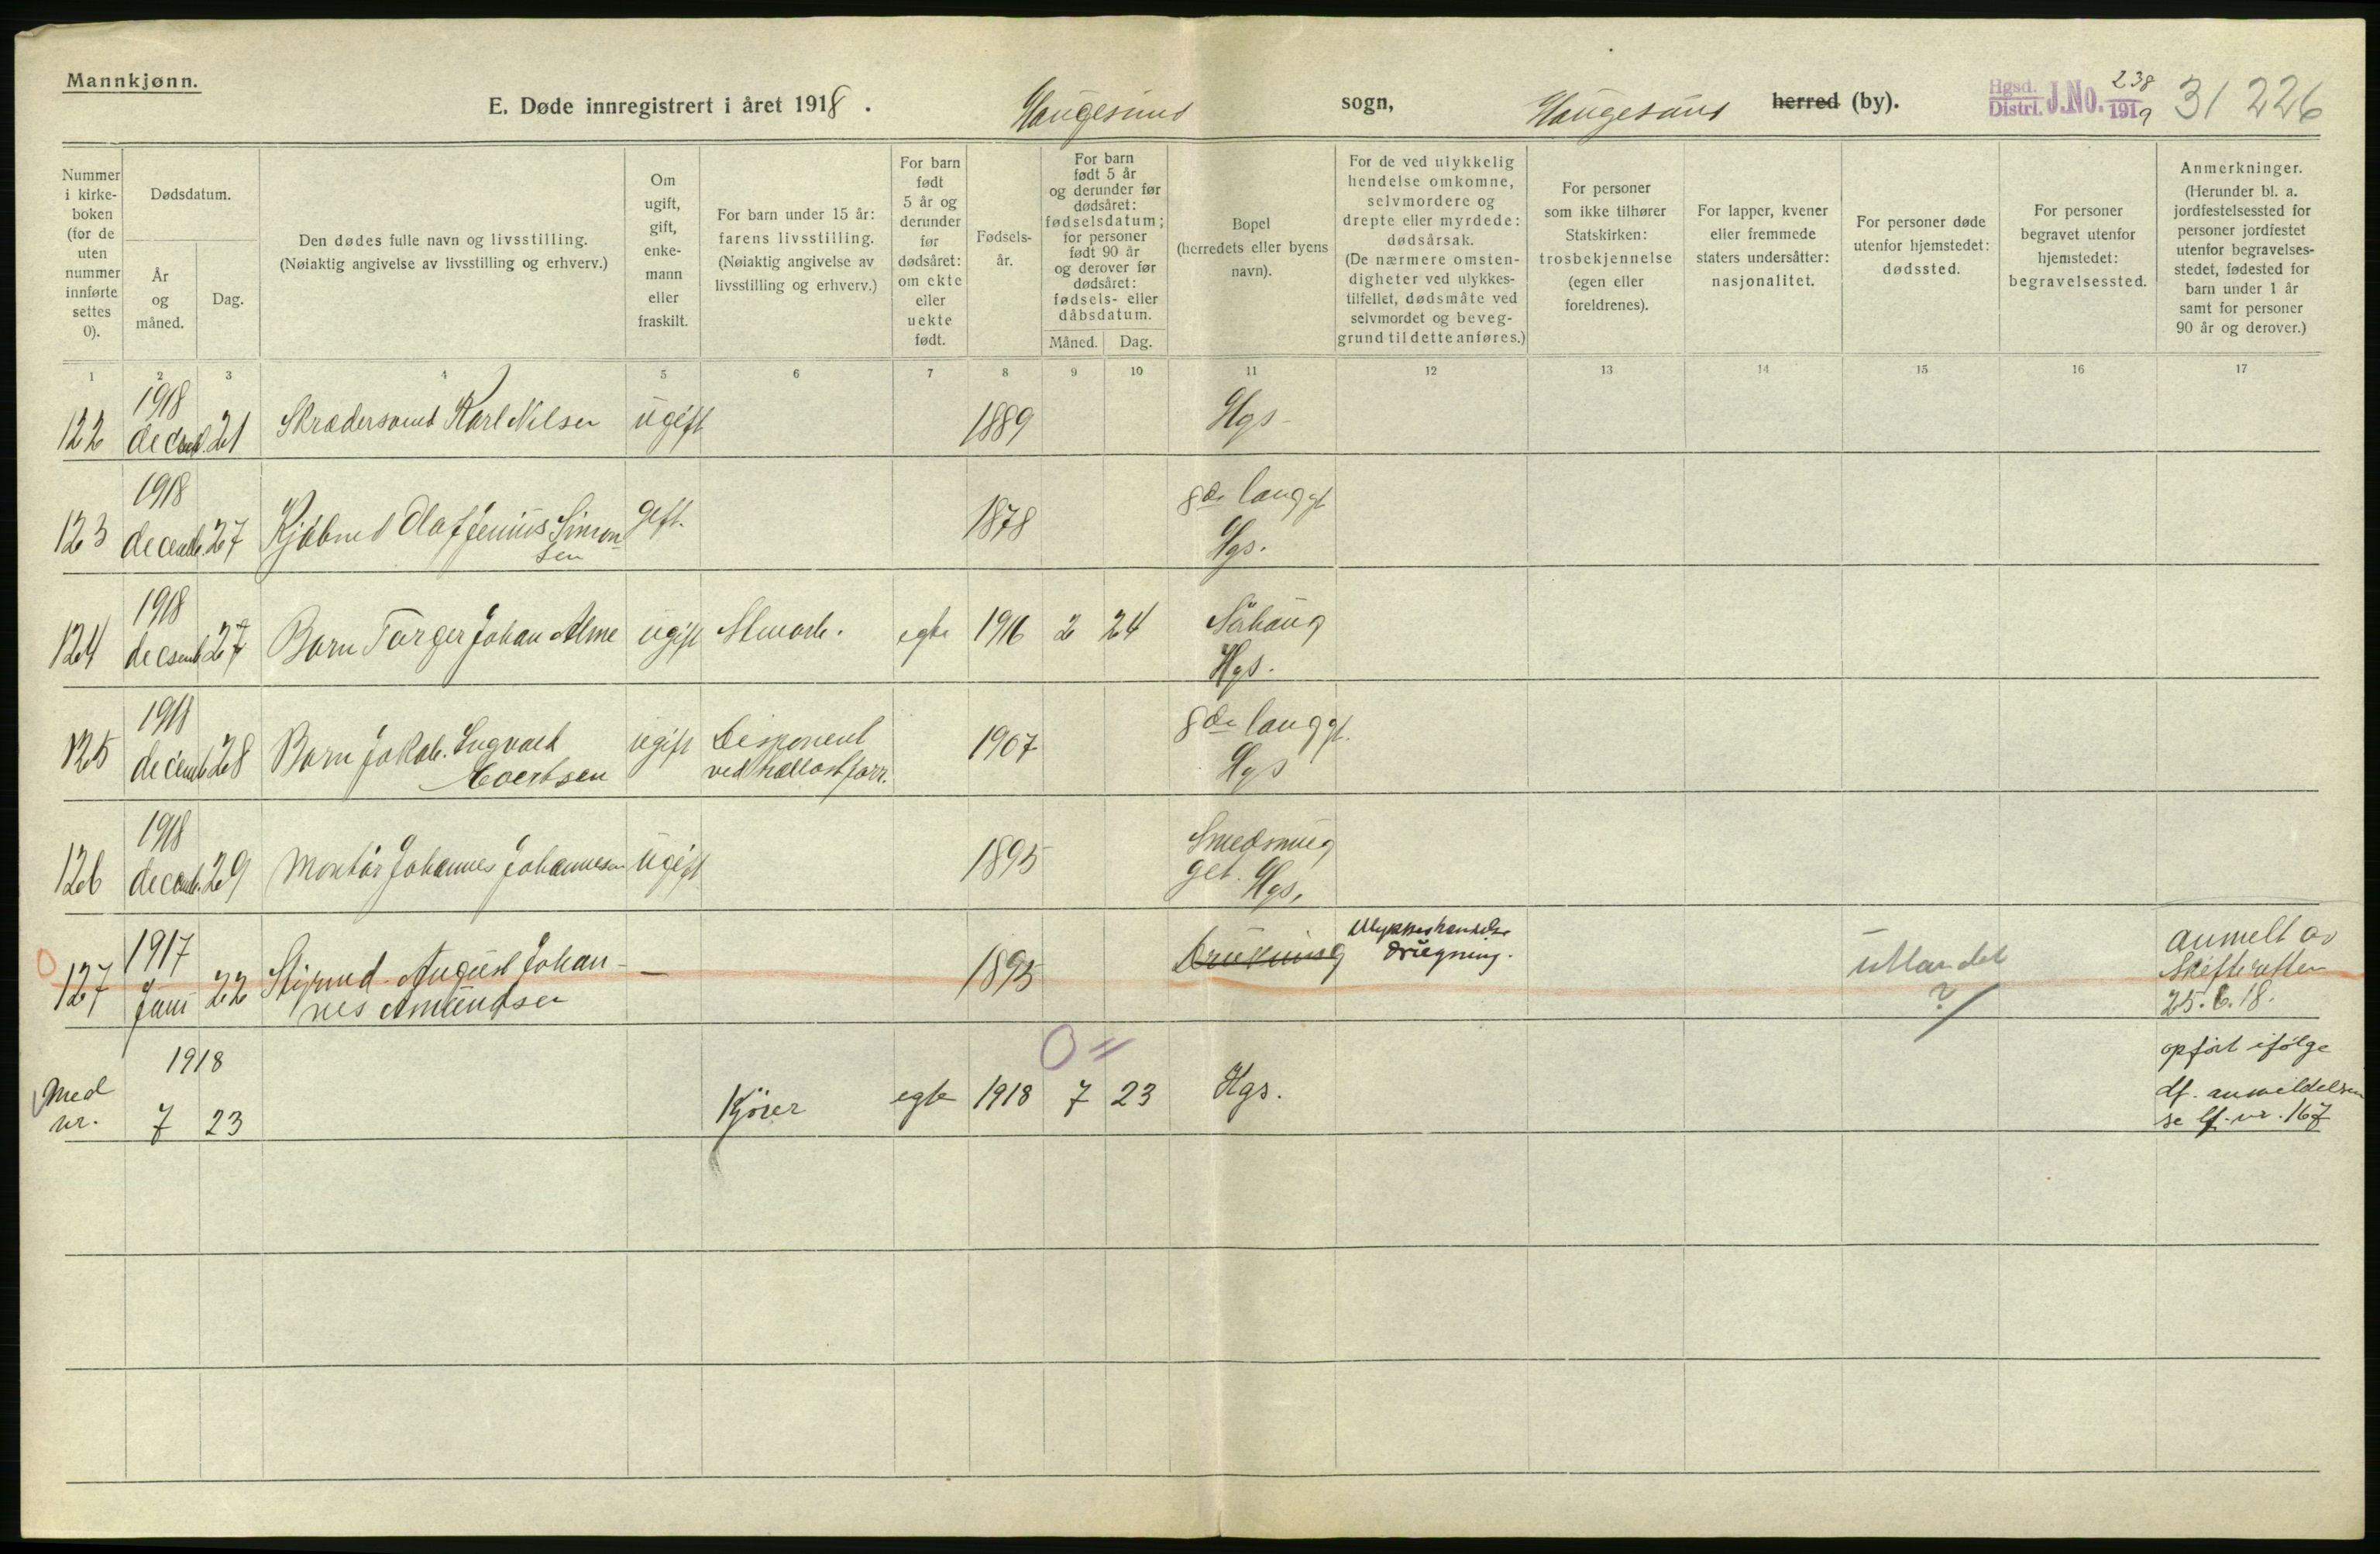 Mannkjønn.
E. Døde innregistrert i året 1918. Haugesund sogn, Haugesund herred (by).
Hgsd. Distri. J.No. 238 1919
31 226
Nummer i kirke-boken (for de uten nummer innførte settes 0).
Dødsdatum.
År og måned.
Dag.
Den dødes fulle navn og livsstilling.
(Nøiaktig angivelse av livsstilling og erhverv.)
Om ugift, gift, enke-mann eller fraskilt.
For barn under 15 år: farens livsstilling.
(Nøiaktig angivelse av livsstilling og erhverv.)
For barn født 5 år og derunder før dødsåret: om ekte eller uekte født.
Fødsels-år.
For barn født 5 år og derunder før dødsåret: fødselsdatum; for personer født 90 år og derover før dødsåret: fødsels- eller dåbsdatum.
Måned.
Dag.
Bopel (herredets eller byens navn).
For de ved ulykkelig hendelse omkomne, selvmordere og drepte eller myrdede: dødsårsak.
(De nærmere omsten-digheter ved ulykkes-tilfellet, dødsmåte ved selvmordet og beveg-grund til dette anføres.)
For personer som ikke tilhører Statskirken: trosbekjennelse (egen eller foreldrenes).
For lapper, kvener eller fremmede staters undersåtter: nasjonalitet.
For personer døde utenfor hjemstedet: dødssted.
For personer begravet utenfor hjemstedet: begravelsessted.
Anmerkninger.
(Herunder bl. a. jordfestelsessted for personer jordfestet utenfor begravelses-stedet, fødested for barn under 1 år samt for personer 90 år og derover.)
1 2 3 4 5 6 7 8 9 10 11 12 13 14 15 16 17
1918
122 21 Karl Nilsen ugift 1889 Hgs
1918
123 27 Kjøbmd Olaf Jenius Simon- gift. 1878
sen Hgs.
1918
124 27 Barn Torger Johan Alme ugift egte 1916 2 24
Hgs.
1918
125 28 Barn Jakob Ingvald ugift Disponent 1907
Coertsen Hgs
1918
126 29 Montør Johannes Johannesen ugift 1895 Smedsmug
get. Hgs.
1917
127 Juni 22 Styrmd. August Johan- — 1895 Drukning Ulykkeshendelse drugning. utlandet ? anmelt av
nes Amundsen Skifteretten
25.6.18.
Med nr. 1918
7 23 Kjører egte 1918 7 23 Hgs. opført ifølge
df. anmeldelsen
se lf. nr. 167